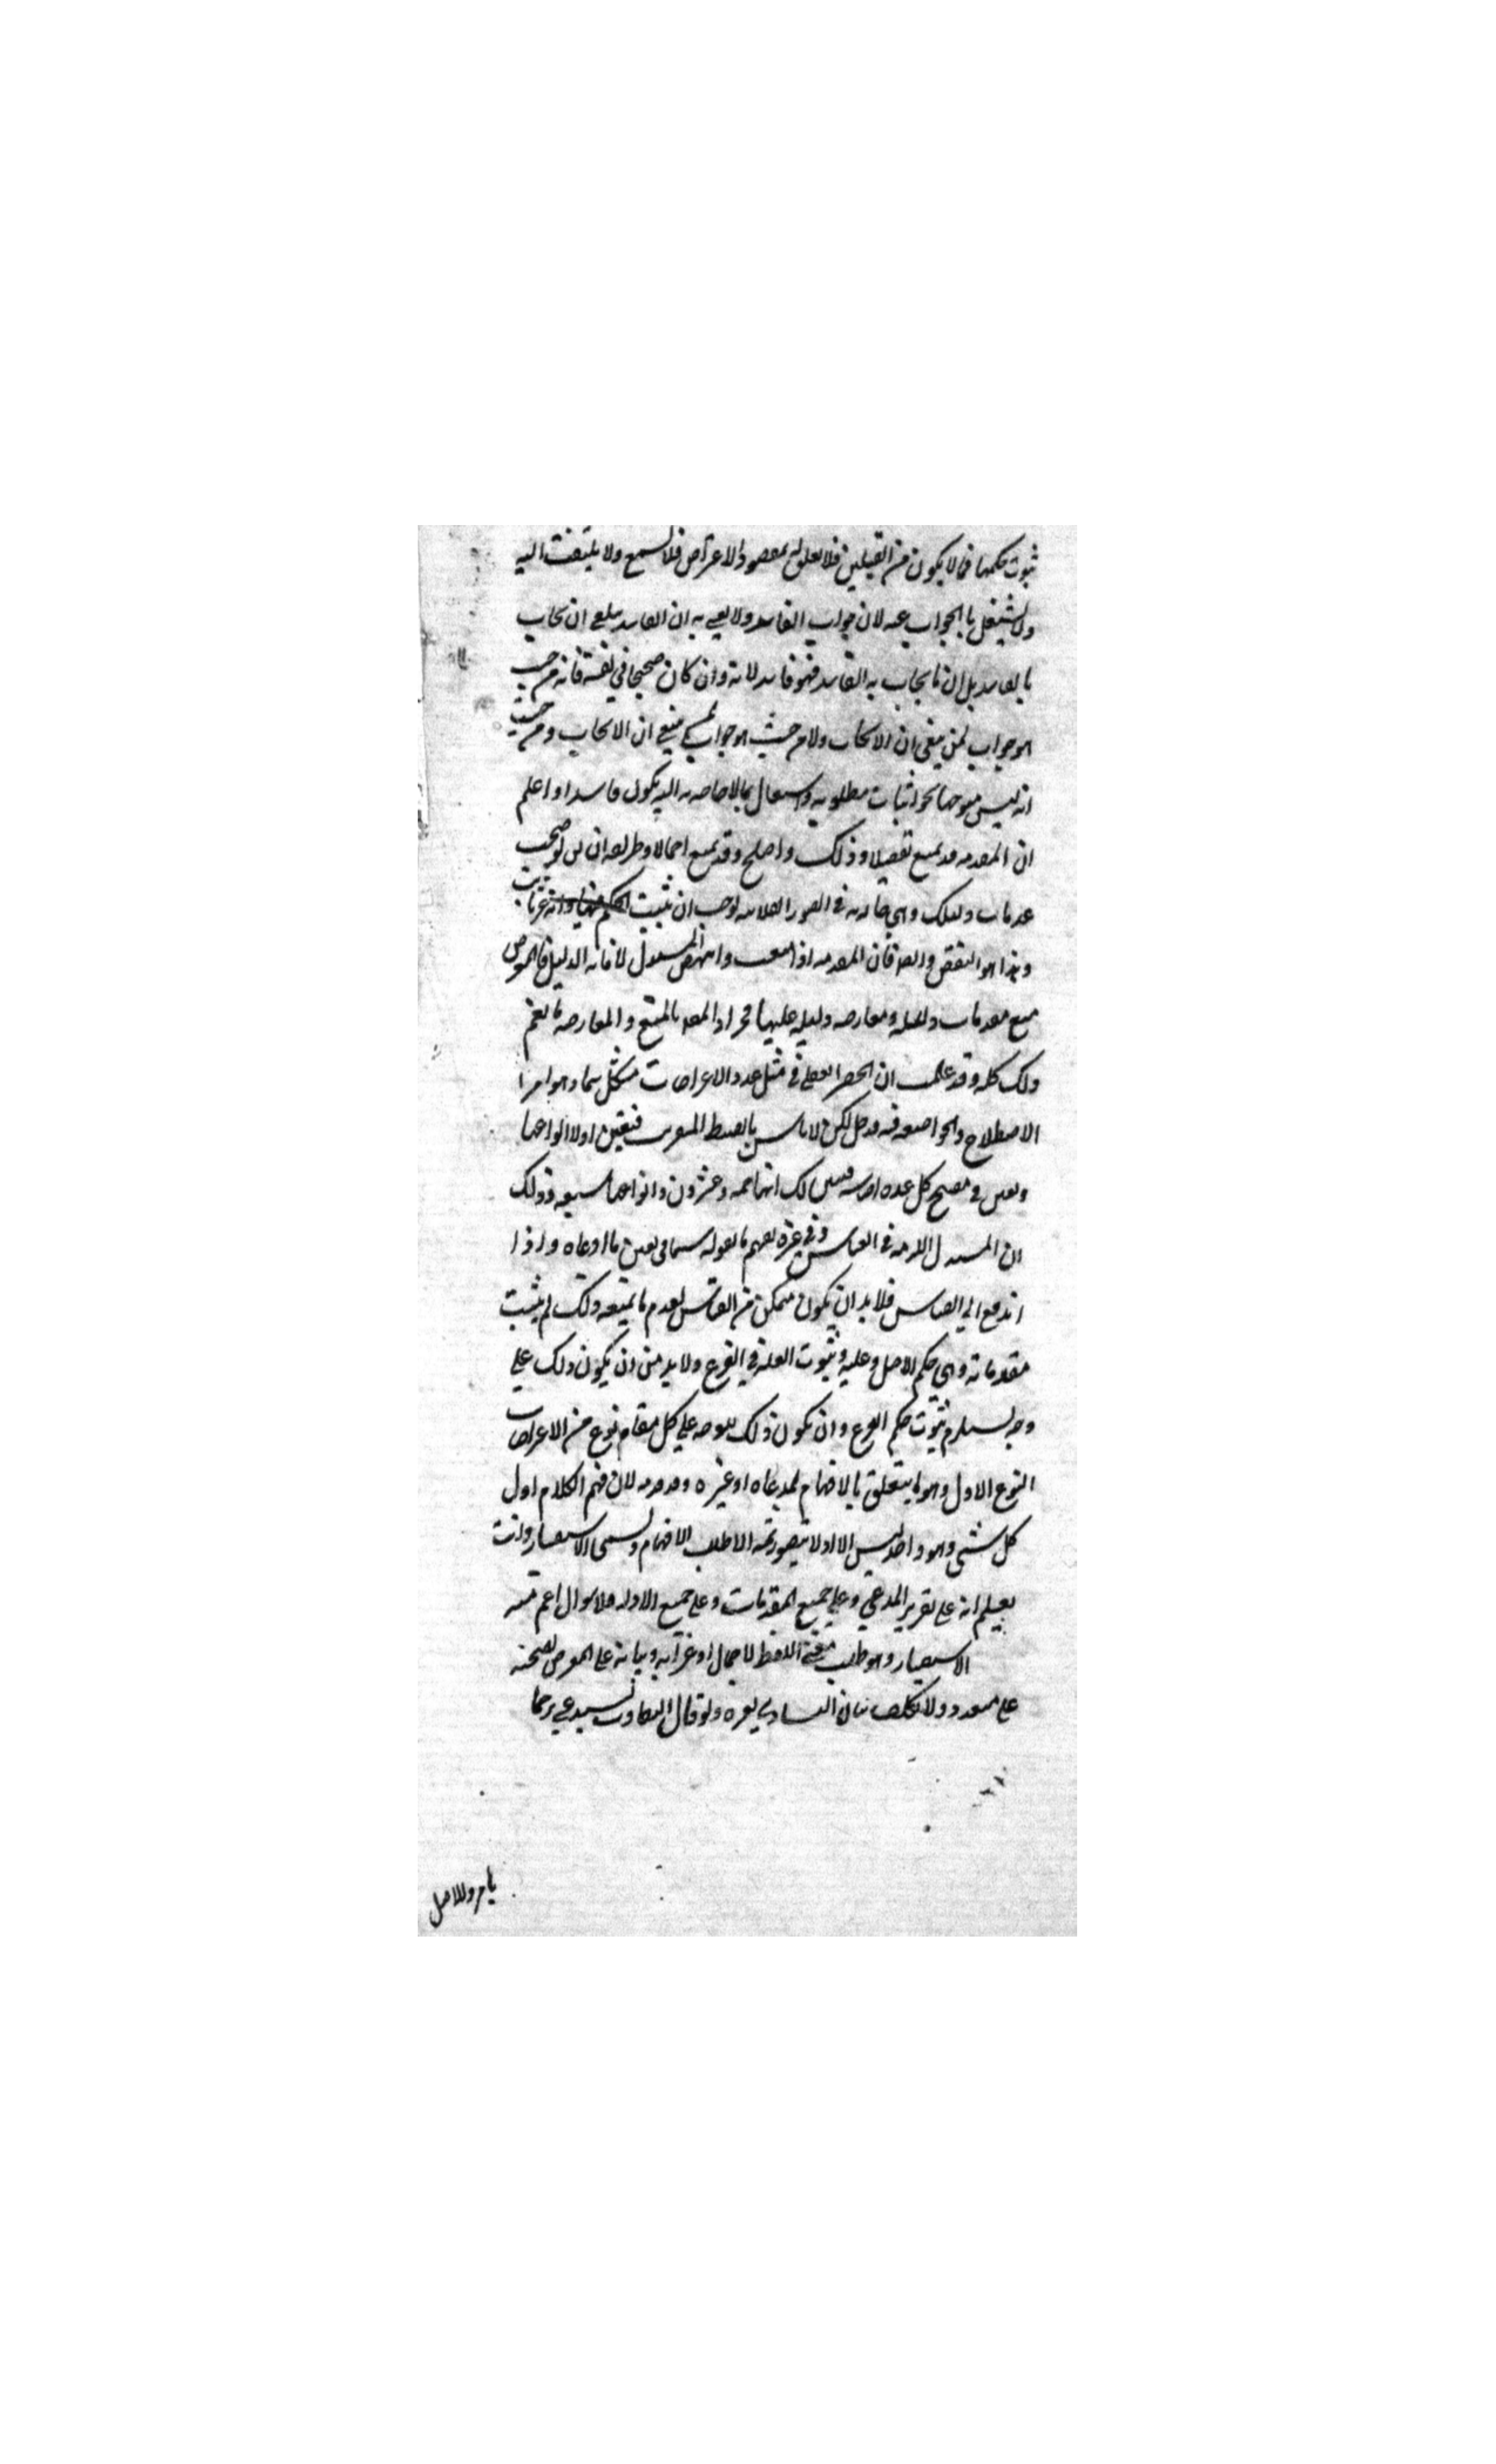 ثبوت حكمها فما لا يكون من القبيلين فلا تعلق له بمقصود الاعتراض فلا يسمع ولا يلتفت اليه
ولا يشتغل بالجواب عنه لان جواب الفاسد ولا يعني به ان الفاسد ينبغي ان يجاب
بالفاسد بل ان ما يجاب به الفاسد فهو فاسد لانه وان كان صحيحا في نفسه فانه من حيث
هو جواب لمن ينبغي ان لا يجاب ولا من حيث هو جواب ينبغي ان لا يجاب ومن حيث
انه ليس متوجها نحو اثبات مطلوبه واشتغال بما لا حاجة به اليه يكون فاسدا واعلم
ان المقدمة قد تمنع تفصيلا وذلك واضح وقد تمنع اجمالا وطريقه ان لو صحت
مقدمات دليلك وهي جارية في الصورة الفلانية لوجب ان يثبت الحكم فيها وانه غير ثابت
وهذا هو النقض فان المقدمة اذا منعت وانتهض المستدل لاقامة الدليل فالمعترض
منع مقدمات دليله ومعارضة دليله عليها المنع والمعارضة
ذلك كله وقد علمت ان الحصر العقلي في مثل عدد الاعتراضات مشكل سيما وهو امر
الاصطلاح والمواضعة فيه مدخل لكن لا باس بالضبط المقرب فنعين اولا انواعها
ونعين في مفتتح كل عدة اصنافه ليبين لك انها خمسة وعشرون وانواعها سبعة وذلك
ان المستدل يلزمه في القياس وفي غيره تفهيم ما يقوله سيما في تعيين ما ادعاه واذا
اندفع الى القياس فلا بد ان يكون متمكنا من القياس لعدم ما يمنعه وذلك ثم يثبت
مقدماته وهي حكم الاصل وعلته وثبوت العلة في الفرع ولا بد من ان يكون ذلك على
وجه يستلزم ثبوت حكم الفرع وان يكون ذلك يتوجه على كل مقام نوع من الاعتراضات
النوع الاول وهو ما يتعلق بالافهام لمدعاه او غيره وقدمه لان فهم الكلام اول
كل شئ وهو واحد ليس الا اذ لا يتصور ثمه الا طلب الافهام ويسمى الاستفسار وانت
تعلم انه على تقرير المدعى وعلى جميع المقدمات وعلى جميع الادلة فلا سؤال اعم منه
الاستفسار وهو طلب معنى اللفظ لاجمال او غرابة وبيانه على المعترض لصحته
على متعدد ولا يكلف بيان التساوي لعسره ولو قال التفاوت يستدعي ترجيحا
بامر والاصل